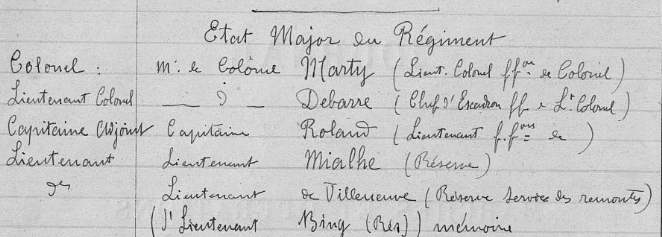 Etat Major du Régiment
Colonel : Mr. le Colonel Marty (Lieut. Colonel ff.ons de Colonel)
Lieutenant Colonel — d° — Debarre (Chef d'Escadron ff. de Lt Colonel)
Capitaine Adjoint Capitaine Roland (Lieutenant f.f.ons de )
Lieutenant Lieutenant Mialhe (Réserve)
d° Lieutenant de Villeneuve (Réserve Service des remontes)
(S/ Lieutenant Bing (Res)) mémoire